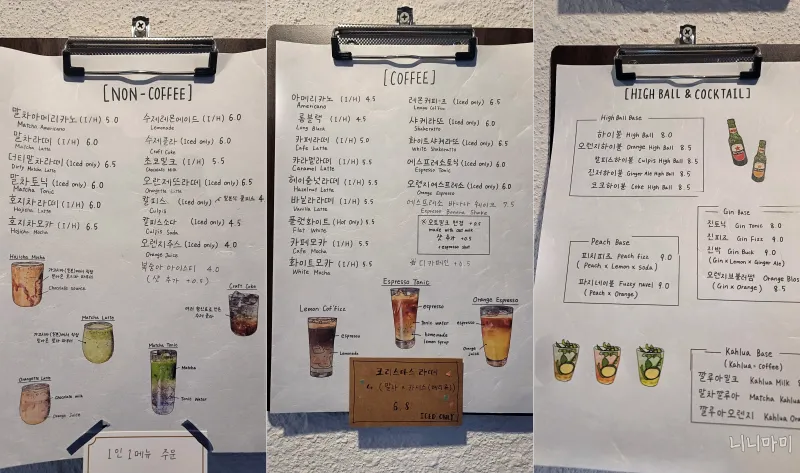 [NON-COFFEE]
말차아메리카노 (I/H) 5.0
Matcha Americano
말차라떼 (I/H) 6.0
Matcha Latte
더티말차라떼 (Iced only) 6.5
Dirty Matcha Latte
말차토닉 (Iced only) 6.0
Matcha Tonic
호지차라떼 (I/H) 6.0
Hojicha Latte
호지차모카 (I/H) 6.5
Hojicha Mocha
수제레몬에이드 (I/H) 6.0
Lemonade
수제콜라 (Iced only) 6.0
Craft Coke
초코밀크 (I/H) 5.5
Chocolate Milk
오란제뜨라떼 (Iced only) 6.5
Orangette Latte
칼피스
Culpis
칼피스소다 4.5
Culpis Soda
오렌지주스 4.0
Orange Juice
복숭아 아이스티 4.0
(샷 추가 +0.5)
Hojicha Mocha
chocolate sauce
Matcha Latte
Craft Coke
Matcha Tonic
Matcha
Tonic Water
Orangette Latte
Chocolate milk
Orange Juice
1인 1메뉴 주문
[COFFEE]
아메리카노 (I/H) 4.5
Americano
롱블랙 (I/H) 4.5
Long Black
카페라떼 (I/H) 5.0
Cafe Latte
캬라멜라떼 (I/H) 5.5
Caramel Latte
헤이즐넛라떼 (I/H) 5.5
Hazelnut Latte
바닐라라떼 (I/H) 5.5
Vanilla Latte
플랫화이트 (Hot only) 5.5
Flat White
카페모카 (I/H) 5.5
Cafe Mocha
화이트모카 (I/H) 5.5
White Mocha
레몬커피-크 (Iced only) 6.5
Lemon Coffee
샤케라또 (Iced only) 6.0
Shakeratto
화이트샤케라또 (Iced only) 6.5
White Shakeratto
에스프레소토닉 (Iced only) 6.0
Espresso Tonic
오렌지에스프레소 (Iced only) 6.0
Orange Espresso
에스프레소 바나나 쉐이크 7.5
Espresso Banana Shake
※ 오트밀크 변경 +0.5
made with oat milk
샷 추가 +0.5
+ espresso shot
※ 디카페인 +0.5
Lemon Cof'fizz
espresso
Lemonade
Espresso Tonic
espresso
Tonic water
homemade
lemon syrup
Orange Espresso
espresso
Orange juice
크리스마스 라떼
6.5
ICED ONLY
[HIGH BALL & COCKTAIL]
High Ball Base
하이볼 High Ball 8.0
오렌지하이볼 Orange High Ball 8.5
칼피스하이볼 Culpis High Ball 8.5
진저하이볼 Ginger Ale High Ball 8.5
코크하이볼 Coke High Ball 8.5
Gin Base
진토닉 Gin Tonic 8.0
진피즈 Gin Fizz 9.0
진벅 Gin Buck 9.0
(Gin x Lemon x Ginger Ale)
오렌지브롤러썸 Orange Blos
(Gin x Orange) 8.5
Peach Base
피치피즈 Peach fizz 9.0
(Peach x Lemon x soda)
퍼지네이블 Fuzzy navel 9.0
(Peach x Orange)
Kahlua Base
(Kahlua + coffee)
깔루아밀크 Kahlua Milk
말차깔루아 Matcha Kahlua
깔루아오렌지 Kahlua Ora
니니마미